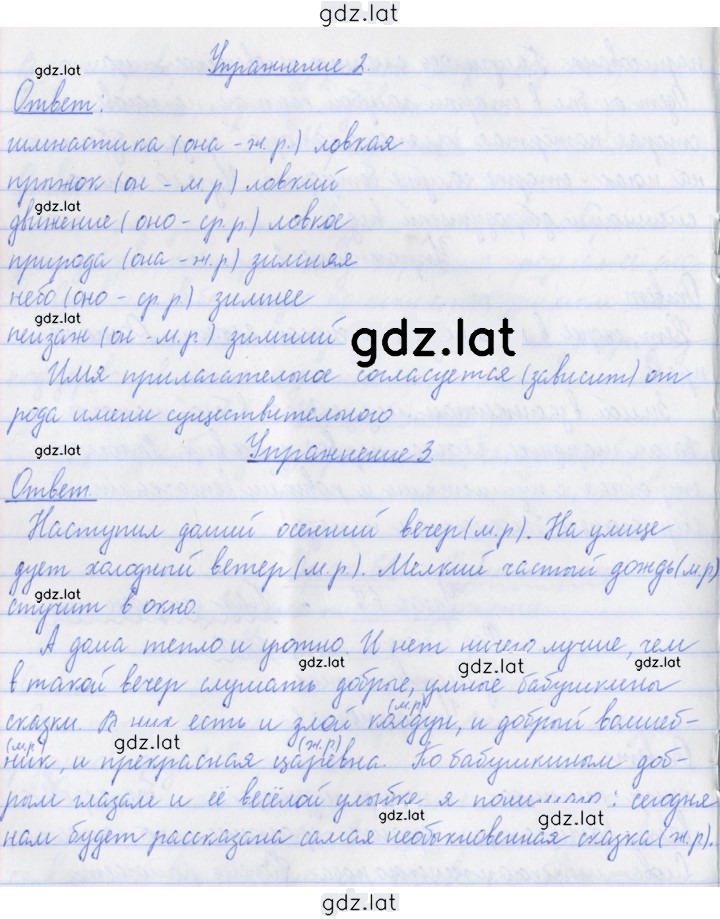 gdz.lat
Упражнение 2.
gdz.lat
Ответ:
гимнастика (она - ж.р.) ловкая
прыжок (он - м.р.) ловкий
gdz.lat
движение (оно - ср.р.) ловкое
природа (она - ж.р) зимняя
небо (оно - ср.р.) зимнее
gdz.lat
пейзаж (он - м.р.) зимний
gdz.lat
Имя прилагательное согласуется (зависит) от
рода имени существительного
gdz.lat
Упражнение 3
Ответ.
Наступил долгий осенний вечер (м.р). На улице
дует холодный ветер (м.р). Мелкий частый дождь (м.р)
gdz.lat
стучит в окно.
А дома тепло и уютно. И нет ничего лучше, чем
gdz.lat gdz.lat gdz.lat
в такой вечер слушать добрые, умные бабушкины
(м.р)
сказки. В них есть и злой колдун, и добрый волшеб-
(м.р) gdz.lat (ж.р)
ник, и прекрасная царевна. По бабушкиным доб-
рым глазам и её весёлой улыбке я : сегодня
gdz.lat gdz.lat
нам будет рассказана самая необыкновенная сказка (ж.р).
gdz.lat